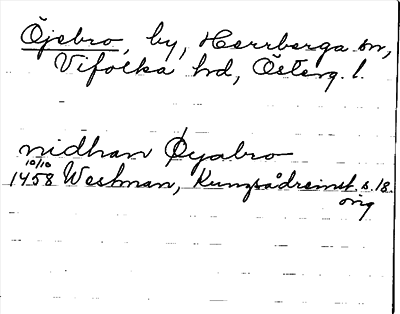 Öjebro, by, Herrberga sn,
Vifolka hd, Österg. l.
nidhan Øyabro
10/10
1458 Westman, Kungsådreinst. s. 18.
orig